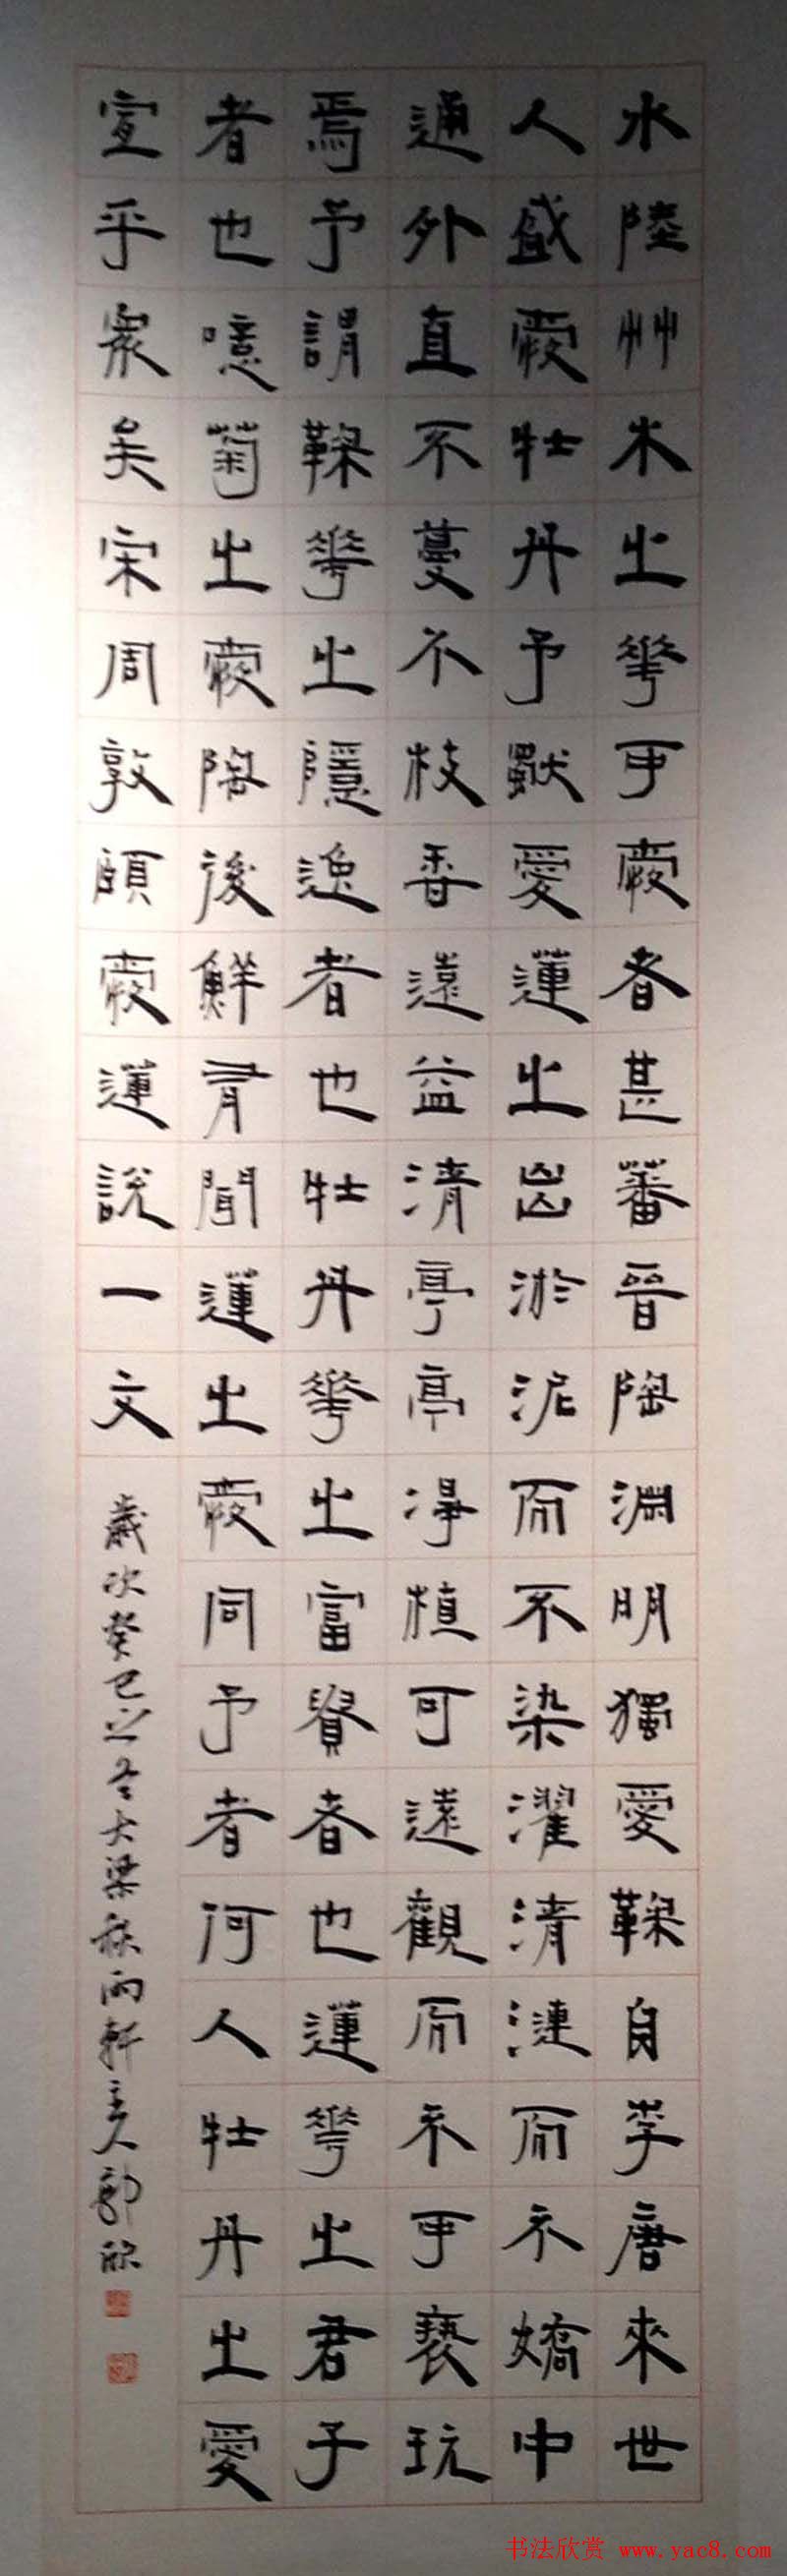 水陸艸木之華可愛者甚蕃晉陶淵明獨愛鞠自李唐來世
人盛愛牡丹予獨愛蓮之出淤泥而不染濯清漣而不嬌中
通外直不蔓不枝香遠益清亭亭淨植可遠觀而不可褻玩
焉予謂鞠華之隱逸者也牡丹華之富貴者也蓮華之君子
者也噫菊之愛陶後鮮有聞蓮之愛同予者何人牡丹之愛
宜乎眾矣宋周敦頤愛蓮說一文
歲次癸巳之冬大梁秋雨軒主人郭欣
书法欣赏 www.yac8.com